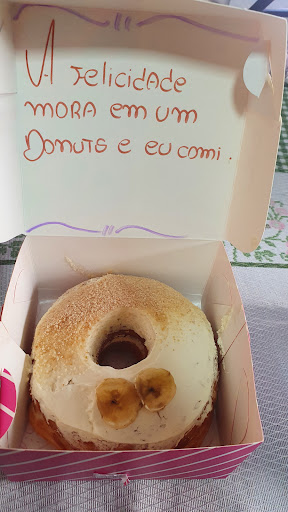 A Felicidade
mora em um
Donuts e eu comi.